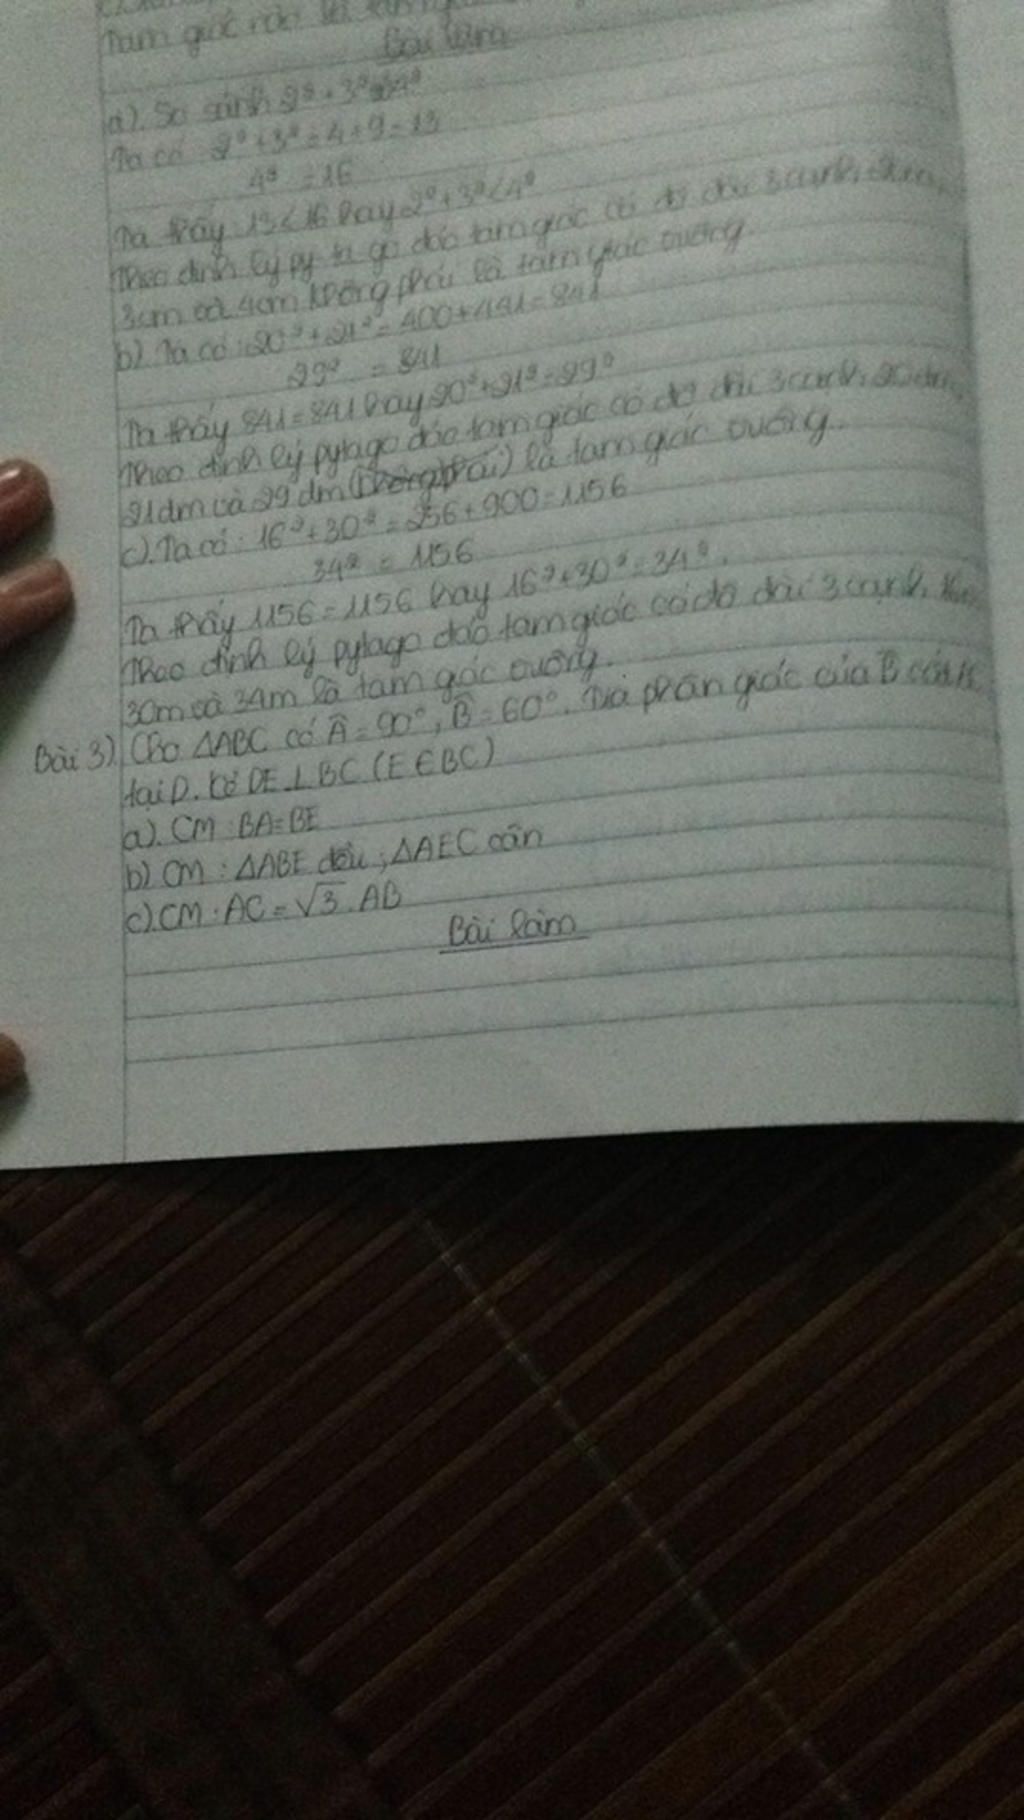 Tam giác nào là
Bài làm
a). So sánh 2² + 3² và 4²
Ta có 2² + 3² = 4 + 9 = 13
4² = 16
Ta thấy 13 < 16 hay 2² + 3² < 4²
Theo định lý py ta go đảo tam giác có độ dài 3 cạnh 2cm,
3cm và 4cm không phải là tam giác vuông.
b) Ta có : 20² + 21² = 400 + 441 = 841
29² = 841
Ta thấy 841 = 841 hay 20² + 21² = 29²
Theo định lý pytago đảo tam giác có độ dài 3 cạnh 20dm,
21dm và 29 dm (không phải) là tam giác vuông.
c). Ta có : 16² + 30² = 256 + 900 = 1156
34² = 1156
Ta thấy 1156 = 1156 hay 16² + 30² = 34².
Theo định lý pytago đảo tam giác có độ dài 3 cạnh
30m và 34m là tam giác vuông.
Bài 3) Cho ΔABC có Â = 90°, B̂ = 60°. Tia phân giác của B̂ cắt
tại D. Kẻ DE ⊥ BC (E ∈ BC)
a). CM : BA = BE
b) CM : ΔABE đều ; ΔAEC cân
c). CM : AC = √3 . AB
Bài làm